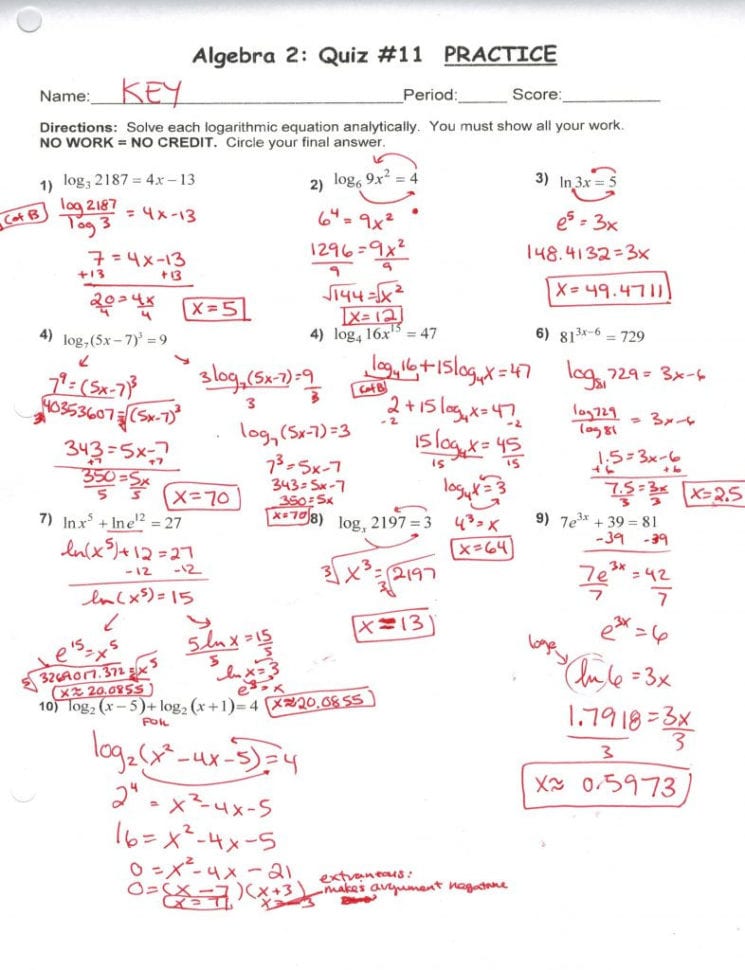 Algebra 2: Quiz #11 PRACTICE
Name: KEY Period: Score:
Directions: Solve each logarithmic equation analytically. You must show all your work.
NO WORK = NO CREDIT. Circle your final answer.
1) log₃ 2187 = 4x – 13
C of B
log 2187 / log 3 = 4x-13
7 = 4x-13
+13 +13
20/4 = 4x/4
x=5
2) log₆ 9x² = 4
6⁴ = 9x²
1296/9 = 9x²/9
√144 = √x²
x=12
3) ln 3x = 5
e⁵ = 3x
148.4132 = 3x
x = 49.4711
4) log₇(5x – 7)³ = 9
7⁹ = (5x-7)³
∛40353607 = ∛(5x-7)³
343 = 5x-7
+7 +7
350/5 = 5x/5
x=70
3log₇(5x-7)/3 = 9/3
log₇(5x-7)=3
7³ = 5x-7
343 = 5x-7
350 = 5x
x=70
4) log₄ 16x¹⁵ = 47
log₄16 + 15log₄x = 47
C of B
2 + 15log₄x = 47
-2 -2
15log₄x/15 = 45/15
log₄x = 3
4³ = x
x=64
6) 81³ˣ⁻⁶ = 729
log₈₁ 729 = 3x-6
log 729 / log 81 = 3x-6
1.5 = 3x-6
+6 +6
7.5/3 = 3x/3
x=2.5
7) ln x⁵ + ln e¹² = 27
ln(x⁵) + 12 = 27
-12 -12
ln(x⁵) = 15
e¹⁵ = x⁵
⁵√3269017.372 = x⁵
x ≈ 20.0855
5 ln x/5 = 15/5
ln x = 3
e³ = x
x≈20.0855
8) logₓ 2197 = 3
∛x³ = ∛2197
x = 13
9) 7e³ˣ + 39 = 81
-39 -39
7e³ˣ/7 = 42/7
e³ˣ = 6
logₑ
ln 6 = 3x
1.7918/3 = 3x/3
x≈ 0.5973
10) log₂(x – 5) + log₂(x + 1) = 4
FOIL
log₂(x² - 4x - 5) = 4
2⁴ = x² - 4x - 5
16 = x² - 4x - 5
0 = x² - 4x - 21
0 = (x - 7)(x + 3)
x = 7 x = -3
extraneous:
makes argument negative